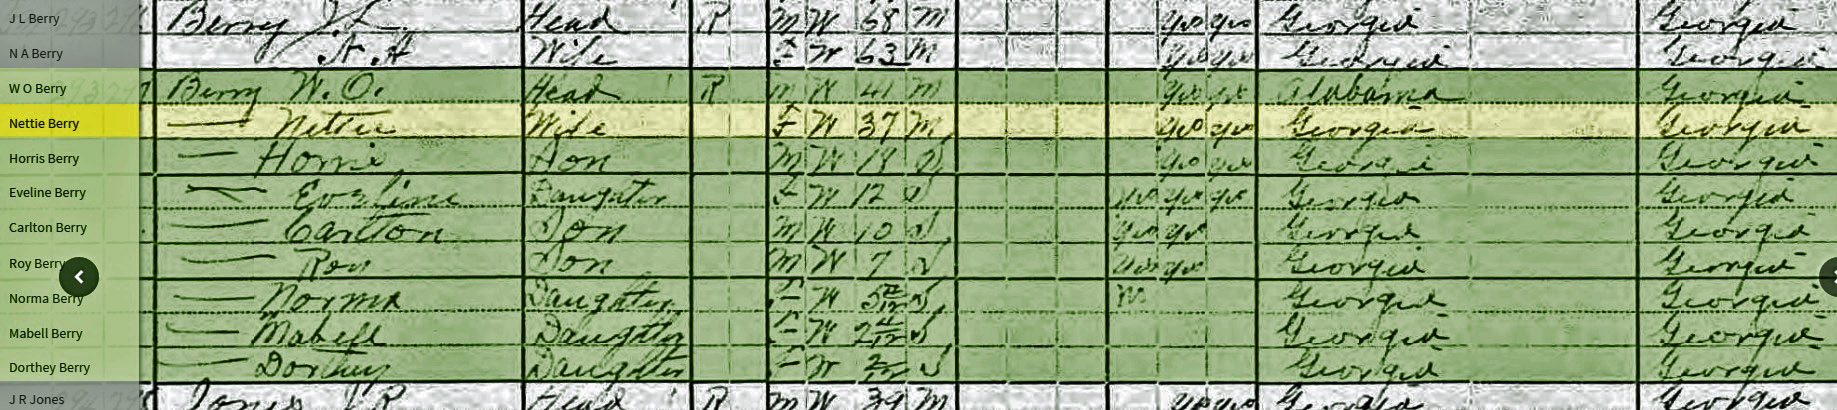 J L Berry Berry J. L. Head R M W 68 M yes yes Georgia Georgia
N A Berry N. A Wife F W 63 M yes yes Georgia Georgia
W O Berry Berry W. O. Head R M W 41 M yes yes Alabama Georgia
Nettie Berry — Nettie Wife F W 37 M yes yes Georgia Georgia
Horris Berry — Horris Son M W 18 S yes yes Georgia Georgia
Eveline Berry — Eveline Daughter F W 12 S yes yes yes Georgia Georgia
Carlton Berry — Carlton Son M W 10 S yes yes Georgia Georgia
Roy Berry — Roy Son M W 7 S yes yes Georgia Georgia
Norma Berry — Norma Daughter F W S Georgia Georgia
Mabell Berry — Mabell Daughter F W S Georgia Georgia
Dorthey Berry — Dorthey Daughter F W S Georgia Georgia
J R Jones Jones J R Head R M W 39 M yes yes Georgia Georgia